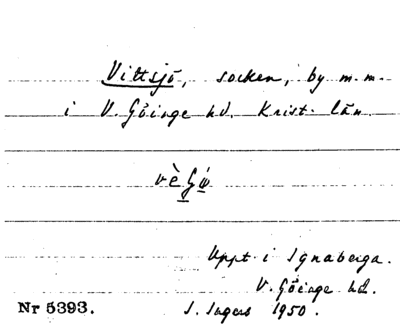 Vittsjö, socken, by m.m.
i V. Göinge hd. Krist. län.
Uppt. i Ignaberga.
V. Göinge hd.
Nr 5393. I. Ingers 1950.